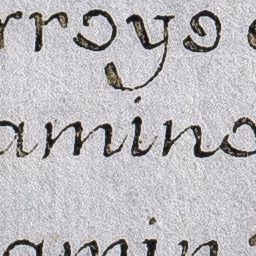 rroyo
amino
amin